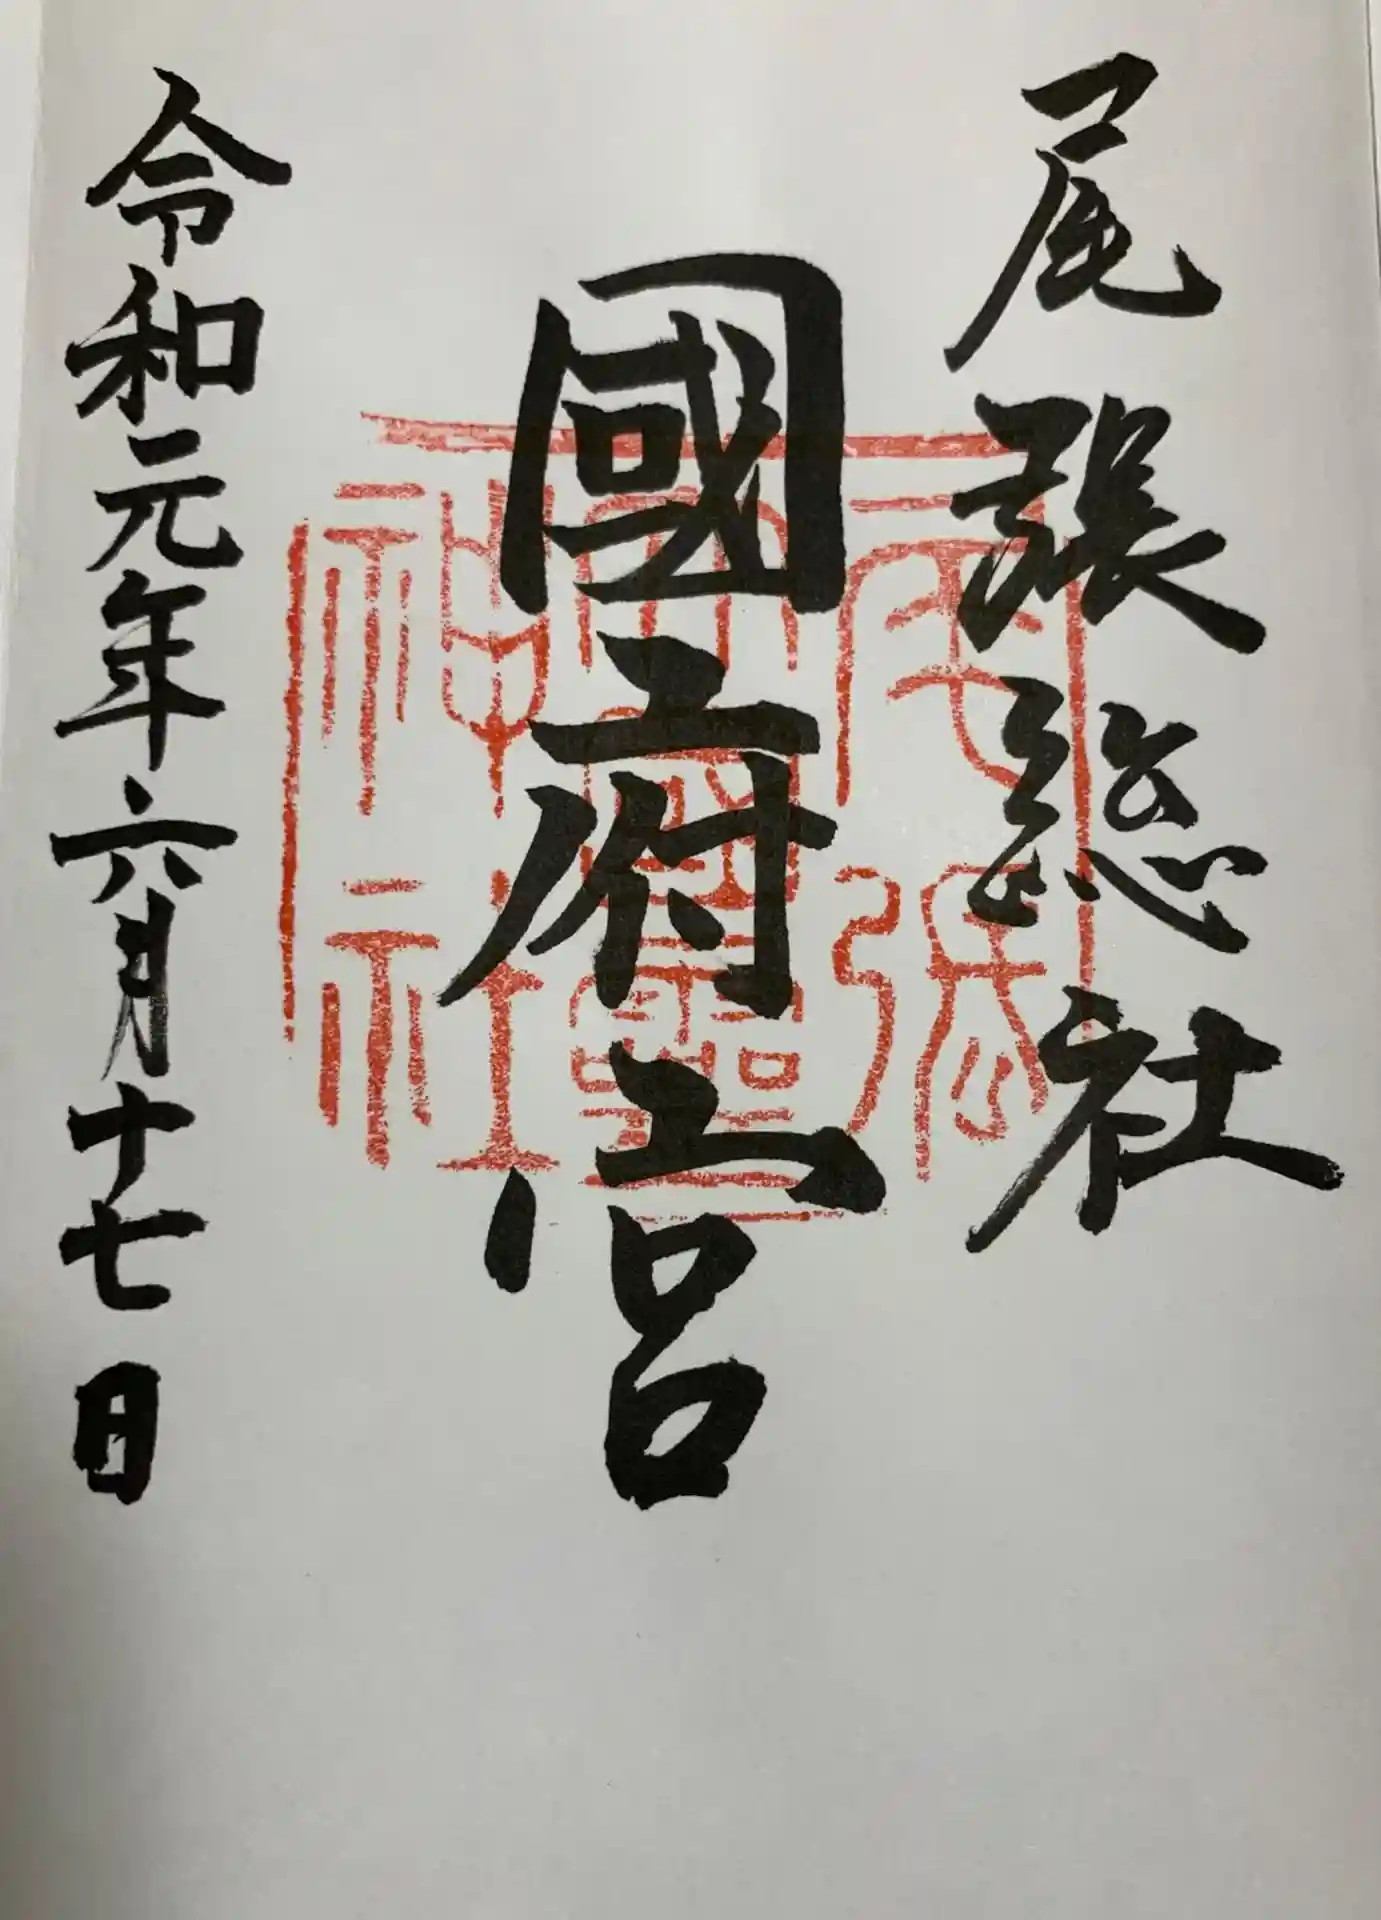 尾張総社
國府宮
令和元年六月十七日
尾張
大國霊
神社